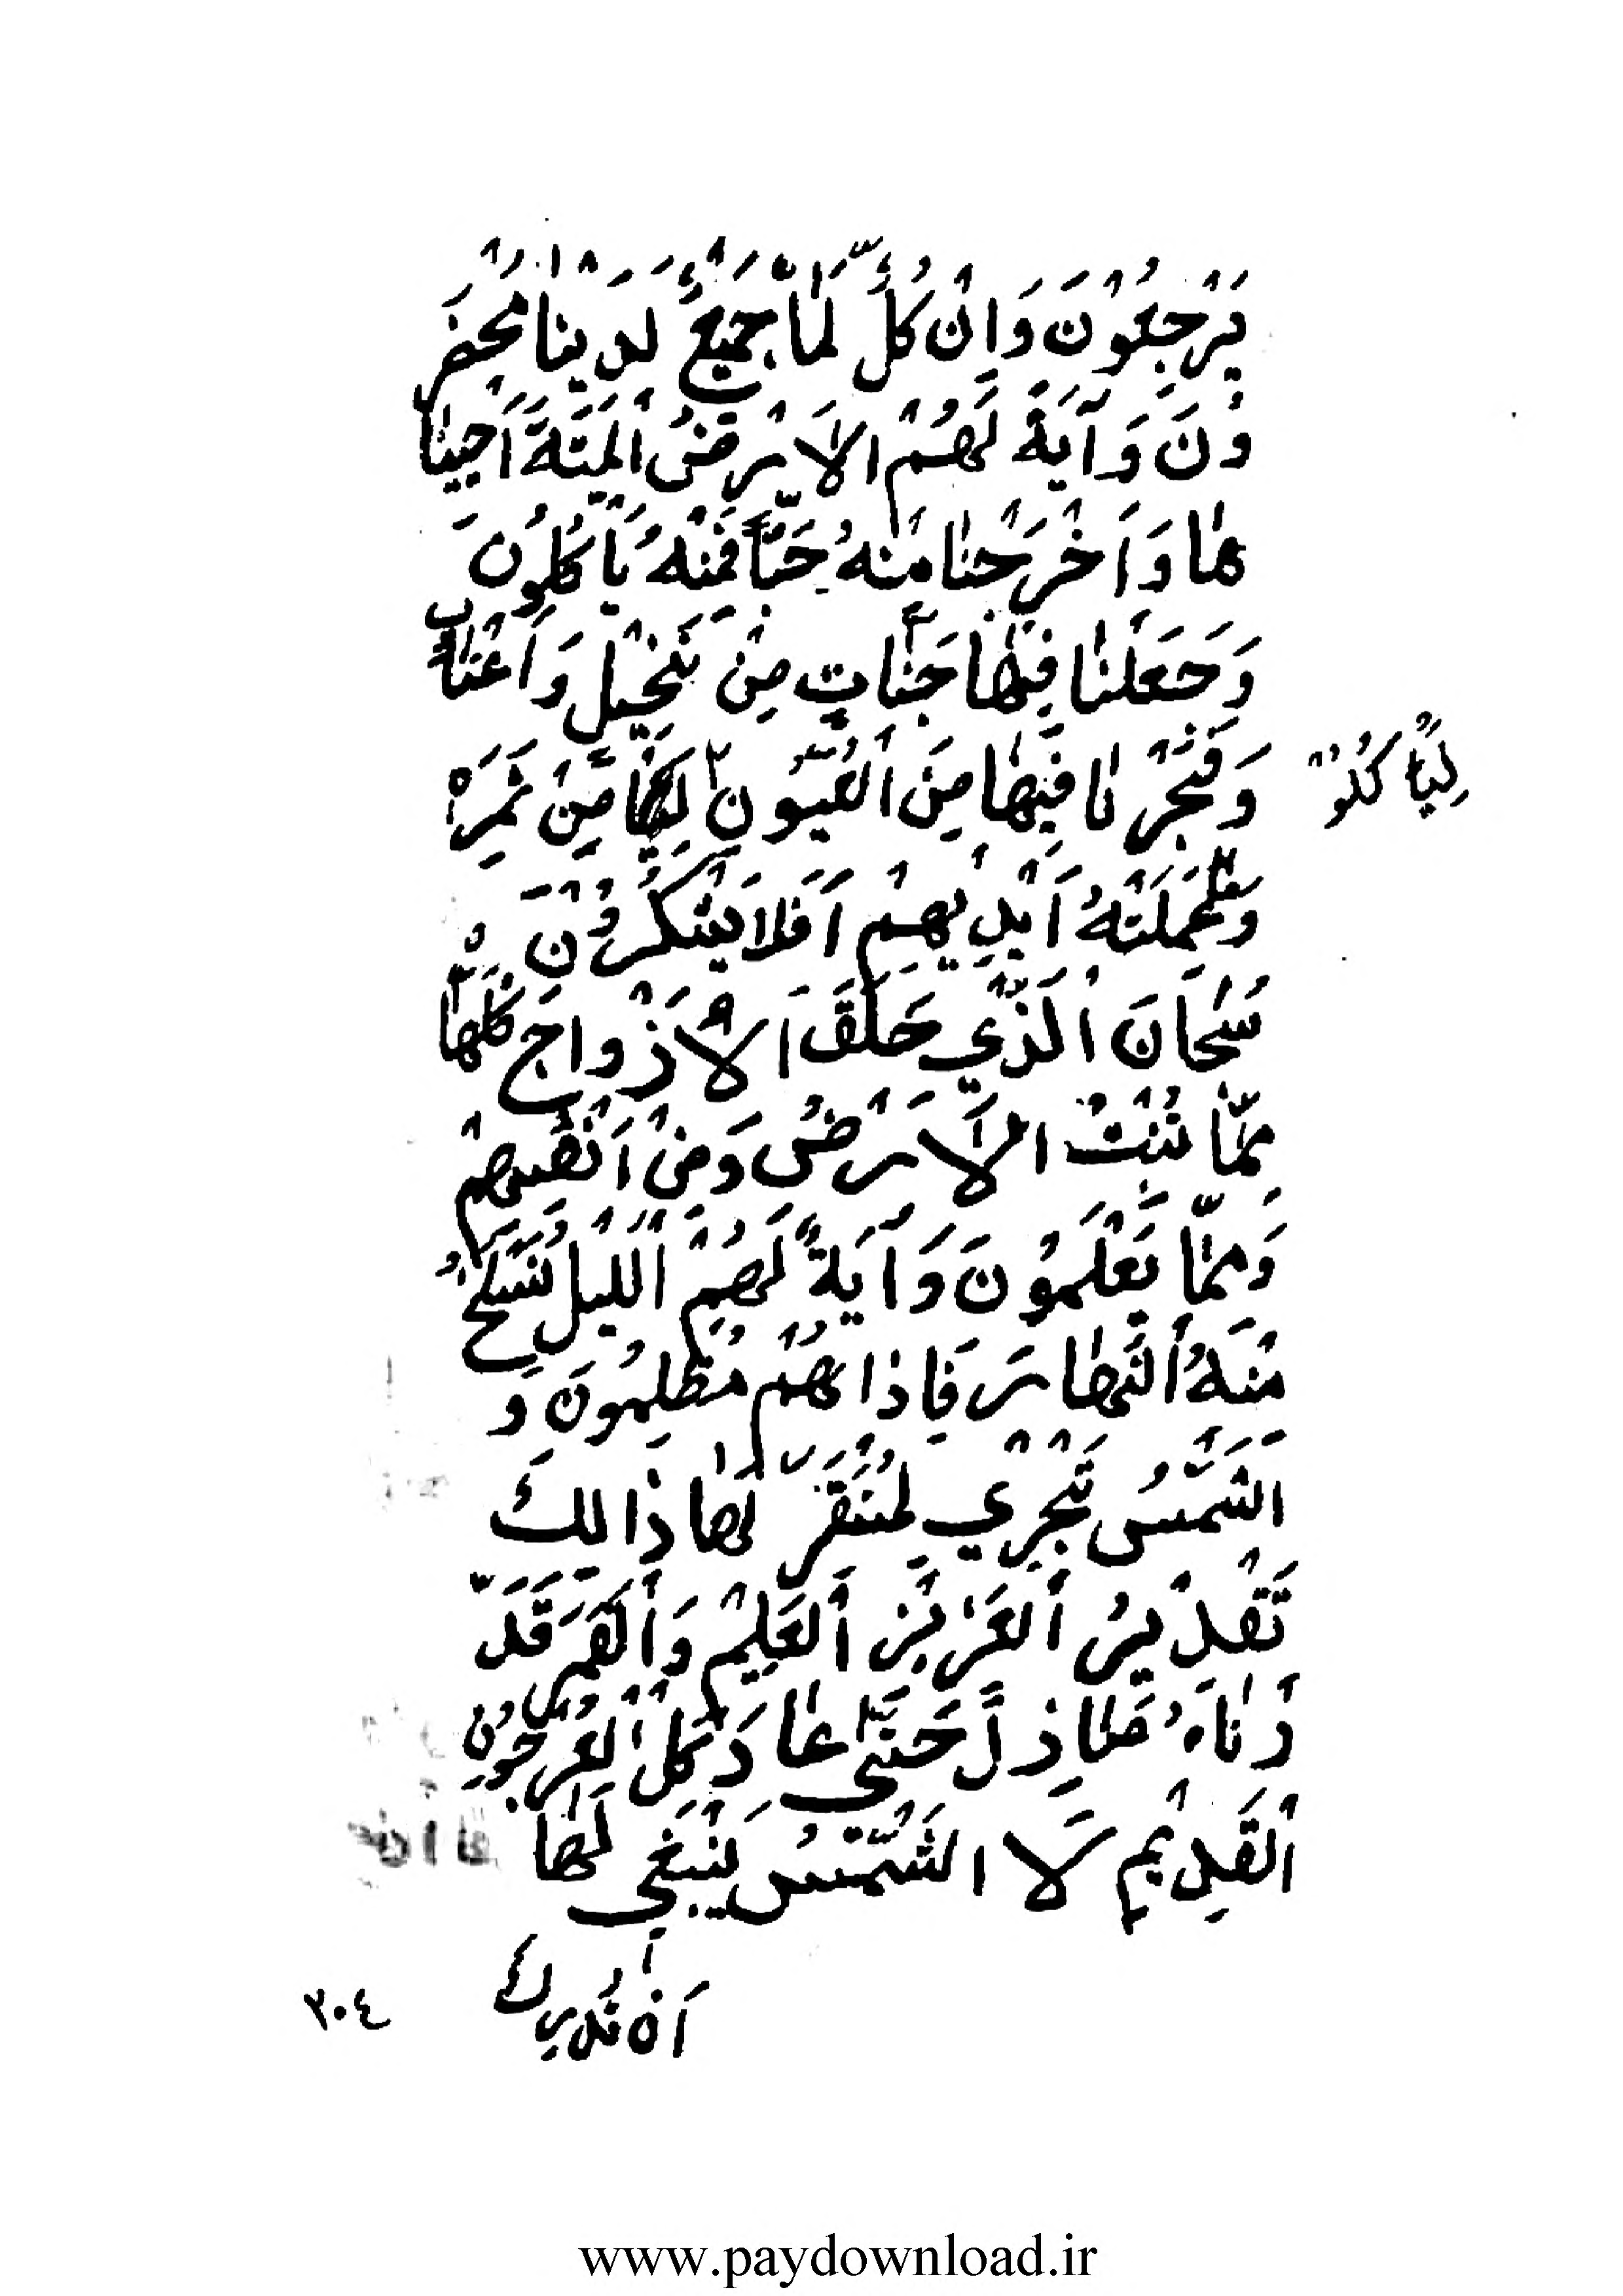 يَرْجِعُوْنَ وَاِنْ كُلٌّ لَمّٰا جَمِيْعٌ لَدَيْنٰا مُحْضَرُ
وْنَ وَآيَةٌ لَهُمْ الاَرْضُ الْمَيْتَةَ اَحْيَيْنٰا
هٰا وَاَخْرَجْنٰا مِنْهُ حَبّاً فَمِنْهُ يَأْكُلُوْنَ
وَجَعَلْنٰا فِيْهٰا جَنّٰاتٍ مِنْ نَخِيْلٍ وَاَعْنٰابٍ
وَفَجَّرْنٰا فِيْهٰا مِنَ الْعُيُوْنِ ٢ مِنْ ثَمَرِهِ
لِيَأْكُلُوْا
وَعَمِلَتْهُ اَيْدِيْهِمْ اَفَلاٰ يَشْكُرُوْنَ
سُبْحَانَ الَّذِيْ خَلَقَ الاَزْوٰاجَ كُلَّهٰا
مِمّٰا تُنْبِتُ الاَرْضُ وَمِنْ اَنْفُسِهِمْ
وَمِمّٰا يَعْلَمُوْنَ وَآيَةٌ لَهُمْ اللَّيْلُ نَسْلَخُ
مِنْهُ النَّهٰارَ فَاِذٰا هُمْ مُظْلِمُوْنَ وَ
الشَّمْسُ تَجْرِيْ لِمُسْتَقَرٍّ لَهٰا ذٰالِكَ
تَقْدِيْرُ الْعَزِيْزِ الْعَلِيْمِ وَالْقَمَرَ قَدَّ
رْنٰاهُ مَنٰازِلَ حَتّٰى عٰادَ كَالْعُرْجُوْنِ
الْقَدِيْمِ لاَ الشَّمْسُ يَنْبَغِي لَهٰا
اَنْ تُدْرِكَ
٣٠٤
www.paydownload.ir